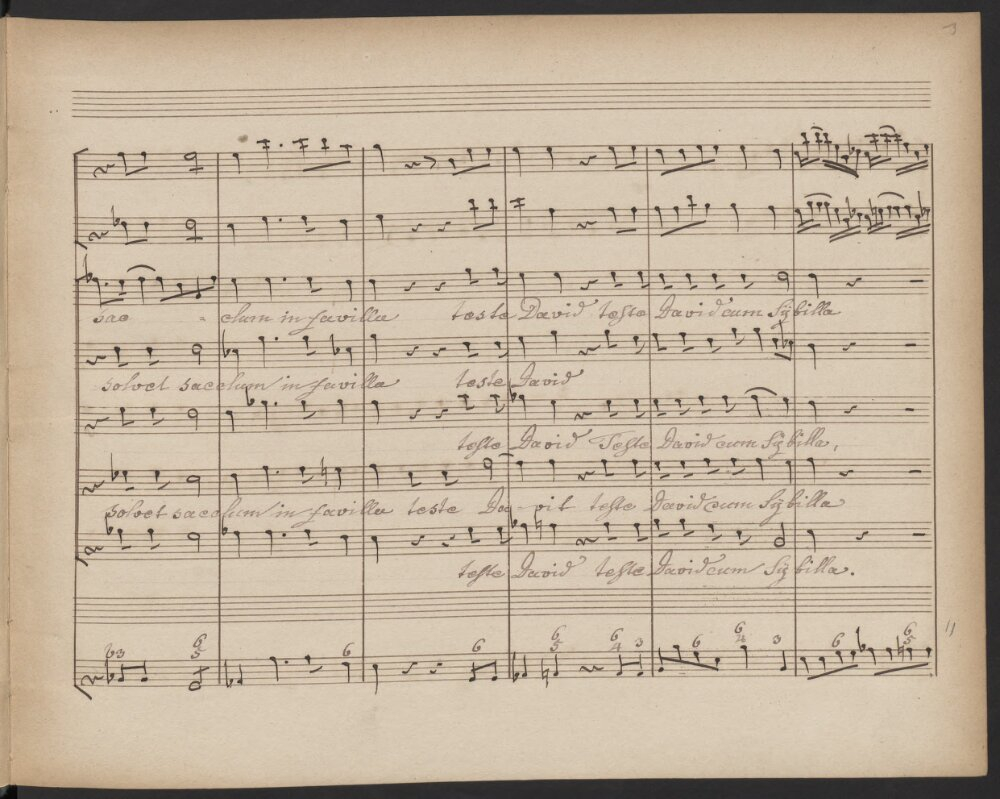 3
sae - clum in favilla teste David teste David cum Sÿbilla
solvet saeclum in favilla teste David
teste David Teste David cum Sÿbilla,
solvet saeclum in favilla teste Da-vit teste David cum Sÿbilla
teste David teste David cum Sÿbilla.
11
b3 6 5 6 6 6 5 6 4 3 6 6 4 3 6 6 5